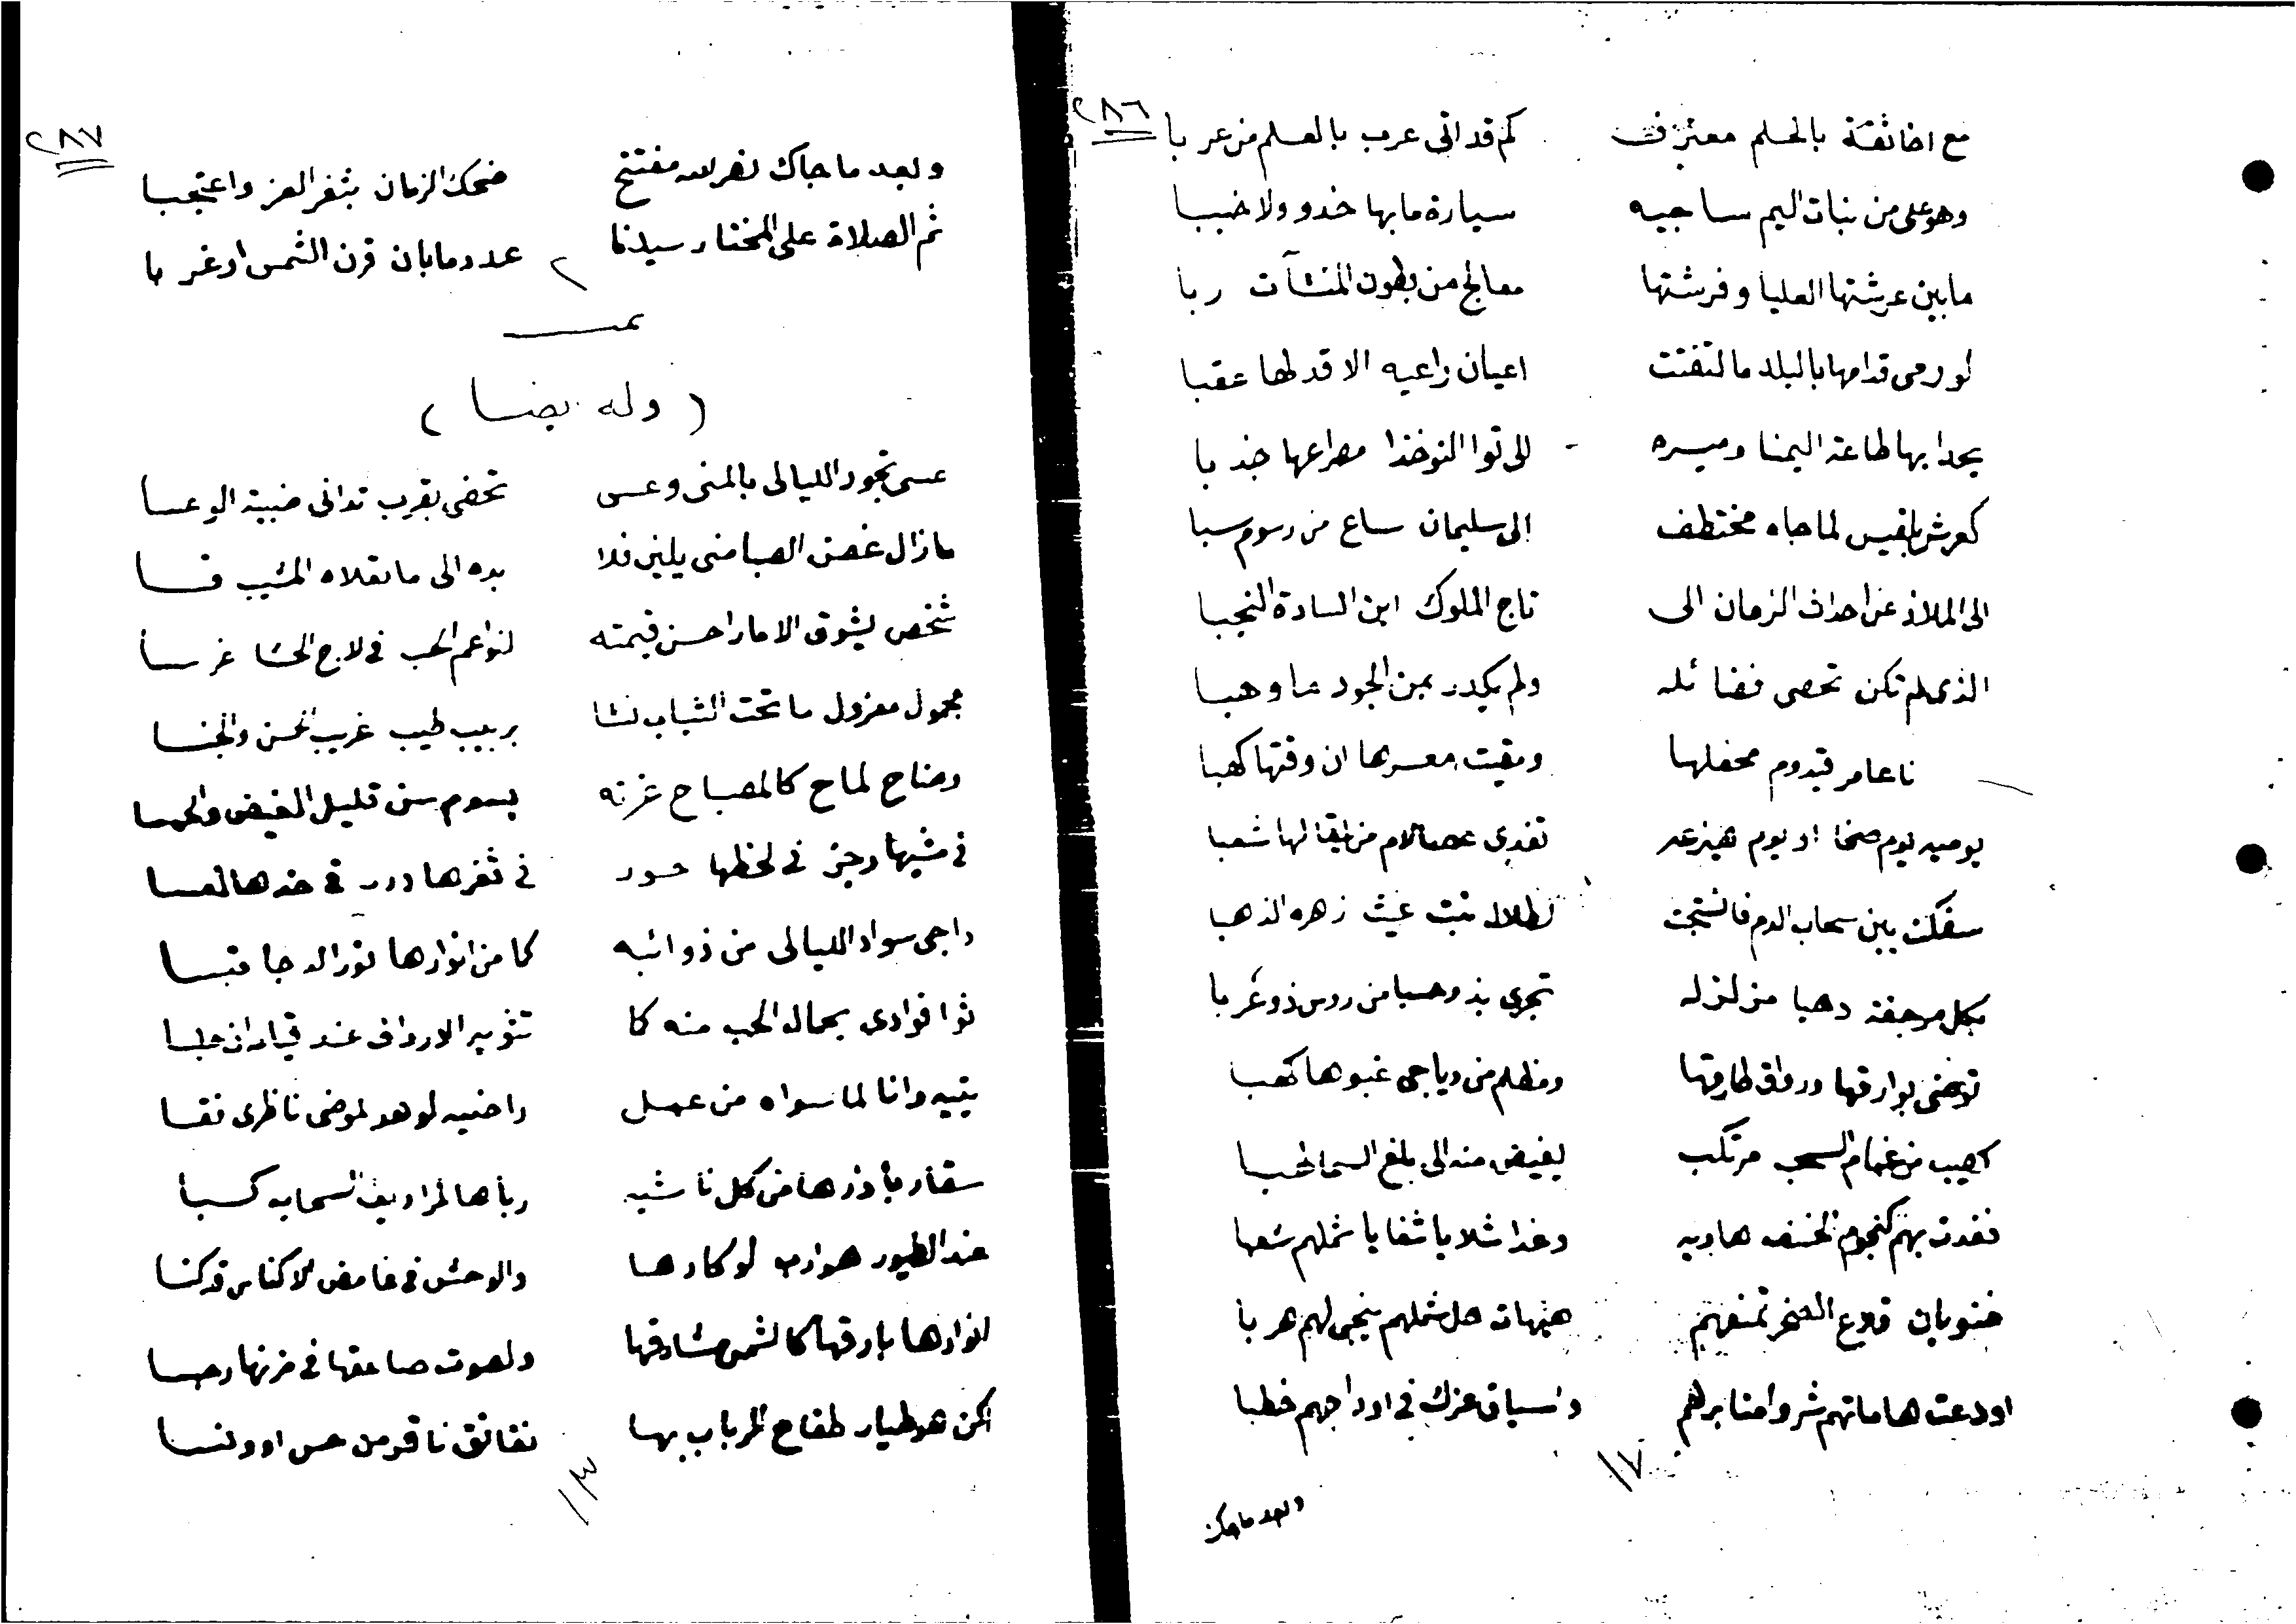 ٢٨٦
مع اخا ثقة بالحلم معترف كم قد اتى عرب بالعلم من عربا
وهو على من بنات اليم ساجيه سيارة ما بها خدو ولا خببا
ما بين عرشتها العليا وفرشتها معالج من بطون المنشآت ربا
لو رمى قدامها بالبلد ما لتفتت اعيان راعيه الا قد لها عقبا
يحدا بها طاعة اليمنا وميسره للى توا النوخذا مصراعها جذبا
كعرش بلقيس لما جاه مختطف الى سليمان ساع من رسوم سبا
الى الملاذ عن احداث الزمان الى تاج الملوك ابن السادة النجبا
الذى لم تكن تحصى فضائله ولم يكدر بمن الجود ما وهبا
نا عامر قيدوم محفلها ومقيت معسرها ان وقتها كهبا
يوميه يوم صخا او يوم هيزعه تغدى عصا لام من لقا لها شعبا
سفكت بين سحاب الدم فانتتجت نبت غيث زهره الذهبا
بكل مرجفة دهبا مزلزله تجرى من روس ذو غربا
توضى بوارقها ورواق طارقها ومظلم من دياجى غبوها كهبا
كصيب من غمام السحب مرتكب يفيض منه الى بلغ السما لهبا
فغدت بهم كنجوم الخسف هاويه وغدا شلايا شفايا شملهم شعبا
قلاع الصخر تمنعهم هيهات هل شملهم ينجى لهم هربا
اودعت هاماتهم شروا منابرهم واسياف عزك فى اوداجهم خطبا
١٧
وبعد ما جاك
٢٨٧
وبعد ما جاك نصر الله مفتتح ضحك الزمان بثغر العز واعتجبا
ثم الصلاة على المختار سيدنا عدد ما بان قرن الشمس او غربا
٢
تمت
( وله ايضا )
عسى تجود الليالى بالمنى وعسى تحضى بقرب تدانى ضبية الوعسا
ما زال غصن الصبا منى يلين فلا بده الى ما تعلاه المشيب قسا
شخص يشوق الامارا حسن قيمته لنواعم الحب فى لاج الحشا غرسا
مجمول مغزول ما تحت الثياب نشا بربيب طيب غريب الحسن والجنسا
وضاح لماح كالمصباح غرته بسوم سن قليل الغيض
فى مشيها رجز فى لحظها حور فى ثغرها درر فى خدها لعسا
داجى سواد الليالى من ذوائبه كا من انوارها نور الدجا قبسا
ثوا فوادى بحمال الحب منه كا تثويب الارداف عند قيامه ان جلسا
يتيه وانا لما سواه من عمل راضيه لو هو لموضى ناظرى نقسا
سقا دياذرها من كل ناشيه رباها لمراديف السحايه كسبا
عند الطيور هوارب لوكارها والوحش فى غامض الاكناس قد كنسا
انوارها بارقها كالشمس شارقها ولصوت صاعقها فى مزنها رجسا
لكن هو طيار طفاح الرباب بها نقانق ناقو من حس او ونسا
١٣